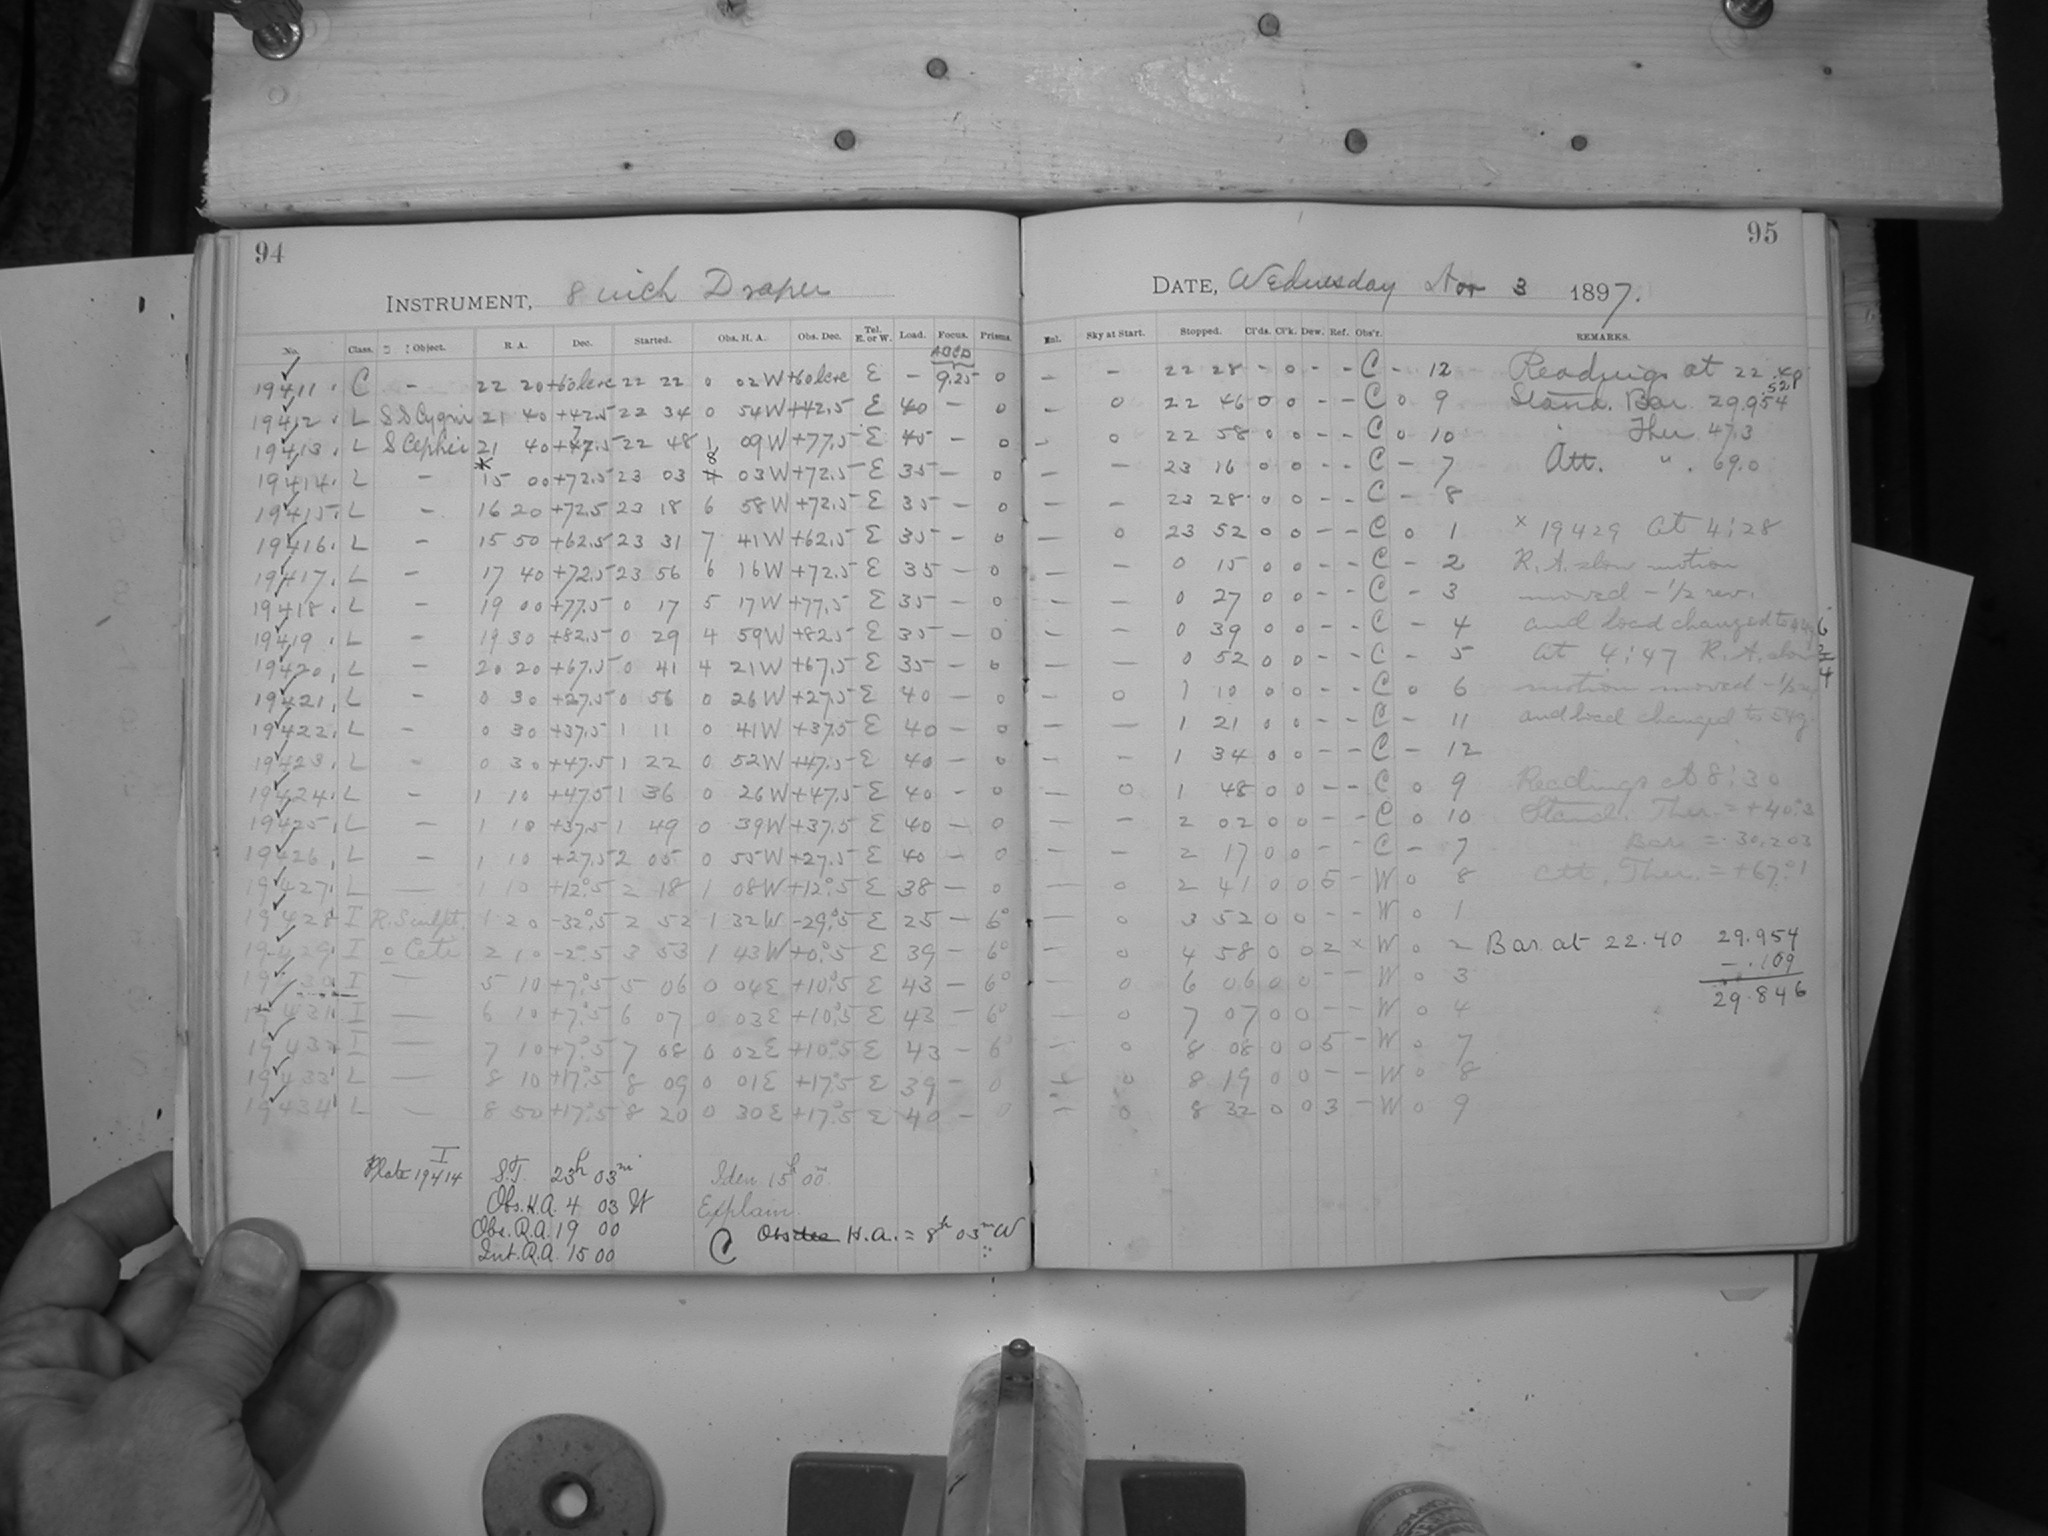 94
INSTRUMENT, 8 inch Draper
No. Class. Object. R. A. Dec. Started. Obs. H. A. Obs. Dec. Tel. E. or W. Load. Focus. Prisms.
ABCD
19411 C - 22 20 22 22 0 02W E - 9.25 0
19412 L SS Cygni 21 40 +42.5 22 34 0 54W +42.5 E 40 -
19413 L S Cephei 21 40 22 48 1 09W +77.5 E 45 - 0
19414 L - 15 00 +72.5 23 03 8 03W +72.5 E 35 - 0
19415 L - 16 20 +72.5 23 18 6 58W +72.5 E 35 - 0
19416 L - 15 50 +62.5 23 31 7 41W +62.5 E 35 - 0
19417 L - 17 40 +72.5 23 56 6 16W +72.5 E 35 - 0
19418 L - 19 00 +77.5 0 17 5 17W +77.5 E 35 - 0
19419 L - 19 30 +82.5 0 29 4 59W +82.5 E 35 - 0
19420 L - 20 20 +67.5 0 41 4 21W +67.5 E 35 - 0
19421 L - 0 30 +27.5 0 56 0 26W +27.5 E 40 - 0
19422 L - 0 30 +37.5 1 11 0 41W +37.5 E 40 - 0
19423 L - 0 30 +47.5 1 22 0 52W +47.5 E 40 - 0
19424 L - 1 10 +47.5 1 36 0 26W +47.5 E 40 - 0
19425 L - 1 10 +37.5 1 49 0 39W +37.5 E 40 - 0
19426 L - 1 10 +27.5 2 05 0 55W +27.5 E 40 - 0
19427 L — 1 10 +12°.5 2 18 1 08W +12°.5 E 38 - 0
19428 I R. Sculpt. 1 20 -32°.5 2 52 1 32W -29°.5 E 25 - 6°
19429 I o Ceti 2 10 -2°.5 3 53 1 43W +0°.5 E 39 - 6°
19430 I — 5 10 +7°.5 5 06 0 04E +10°.5 E 43 - 6°
19431 I — 6 10 +7°.5 6 07 0 03E +10°.5 E 43 - 6°
19432 I — 7 10 +7°.5 7 08 0 02E +10°.5 E 43 - 6°
19433 L — 8 10 +17°.5 8 09 0 01E +17°.5 E 39 - 0
19434 L - 8 50 +17°.5 8 20 0 30E +17°.5 E 40 - 0
I
Plate 19414 S.T. 23h 03m Iden 15h 00m
Obs. H.A. 4 03 W Explain
Obs. R.A. 19 00 C Obs H.A. = 8h 03m W
Int. R.A. 15 00
95
DATE, Wednesday Nov 3 1897.
Enl. Sky at Start. Stopped. Cl'ds. Cl'k. Dew. Ref. Obs'r. REMARKS.
- - 22 28 - 0 - - C - 12 Readings at 22.40
.528
- 0 22 46 0 0 - - C 0 9 Stand. Bar. 29.954
- 0 22 58 0 0 - - C 0 10 Ther. 47.3
- - 23 16 0 0 - - C - 7 Att. " 69.0
- - 23 28 0 0 - - C - 8
- 0 23 52 0 0 - - C 0 1 x 19429 At 4:28
- - 0 15 0 0 - - C - 2 R.A. slow motion
- - 0 27 0 0 - - C - 3 moved - 1/2 rev.
- - 0 39 0 0 - - C - 4 and load changed to
- - 0 52 0 0 - - C - 5 At 4:47 R.A. slow
- 0 1 10 0 0 - - C 0 6 motion moved - 1/2
- - 1 21 0 0 - - C - 11 and load changed to
- - 1 34 0 0 - - C - 12
- 0 1 48 0 0 - - C 0 9 Readings at 8:30
- - 2 02 0 0 - - C 0 10 Stand. Ther. = +40°.3
- - 2 17 0 0 - - C - 7 Bar. = 30.203
- 0 2 41 0 0 5 - W 0 8 Att. Ther. = +67°.1
- 0 3 52 0 0 - - W 0 1
- 0 4 58 0 0 2 x W 0 2 Bar. at 22.40 29.954
- 0 6 06 0 0 - - W 0 3 - .109
- 0 7 07 0 0 - - W 0 4 29.846
- 0 8 08 0 0 5 - W 0 7
- 0 8 19 0 0 - - W 0 8
- 0 8 32 0 0 3 - W 0 9